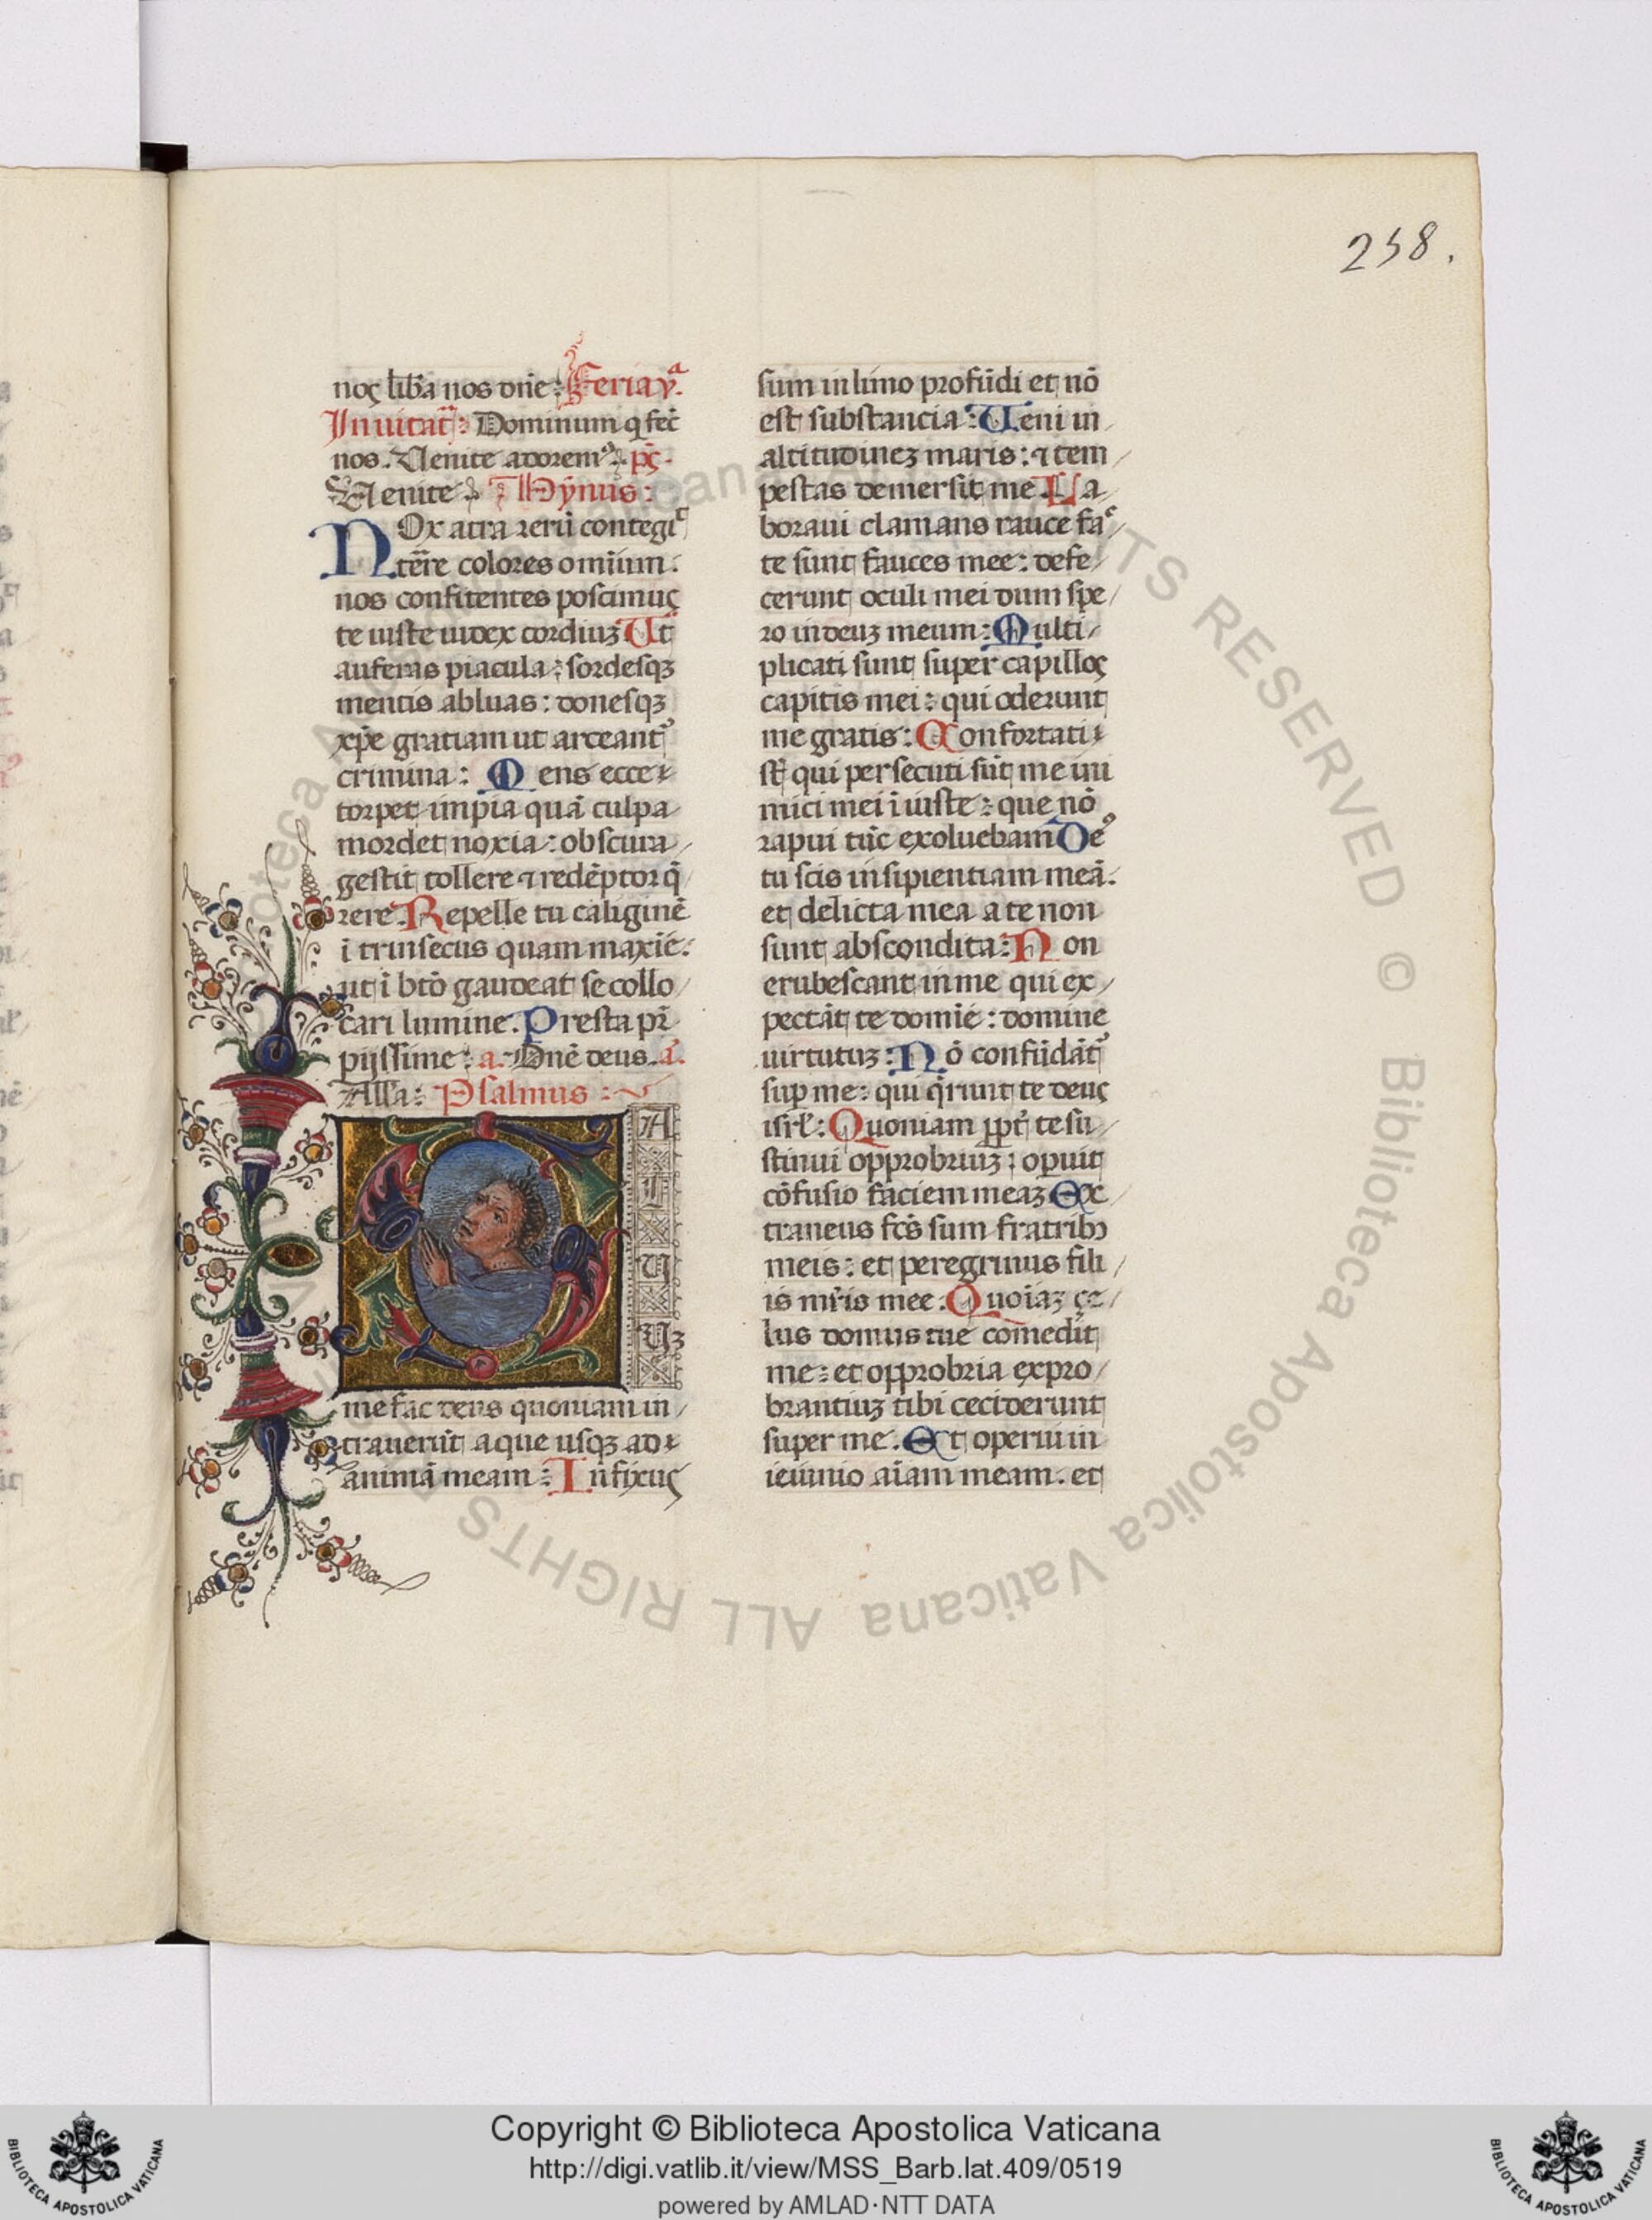 258.
noς lib̄a nos dn̄e: Feria v.ª
Inuitat̄: Dominum q̲ fec̄
nos. Uenite adorem⁹. pˢ.
Uenite. Hȳnus:
NOx atra reru̅ contegiᵗ
ter̅re colores omi̅um.
nos confitentes poscimus
te iuste iudex cordiuꝫ Ut
auferas piacula: sordesqꝫ
mentis abluas: donesqꝫ
xp̄e gratiam ut arceantᷣ
crimina: Mens ecce
torpet impia qua̅ culpa
mordet noxia: obscura
gestit tollere ⁊ rede̅ptor q̄
rere. Repelle tu caligine̅
i̅trinsecus quam maxi̅e:
ut i̅ b̅to gaudeat se collo/
cari lumine. Presta pr̄
pijssime: a. Dn̄e deus. a.
Alla: Psalmus:
SALUUꝫ
me fac deus quoniam in/
trauerūt aque usqꝫ ad
animā meam: Infixus
sum in limo profūdi et nō
est substancia: Ueni in
altitudineꝫ maris: ⁊ tem/
pestas demersit me. La/
boraui clamans rauce fac/
te sunt fauces mee: defe/
cerunt oculi mei dum spe/
ro in deuꝫ meum: Multi/
plicati sunt super capillos
capitis mei: qui oderunt
me gratis: Confortati
st̄ qui persecuti sūt me ini
mici mei i̅iuste: que nō
rapui tūc exoluebam De⁹
tu scis insipientiam meā.
et delicta mea a te non
sunt abscondita: Non
erubescant in me qui ex/
pectāt te domīe: domine
uirtutuꝫ: Nō confūdātᷣ
suꝑ me: qui q̄runt te deus
isr̄l: Quoniam ꝓpt̄ te su/
stinui opprobriuꝫ: oꝑuit
cōfusio faciem meaꝫ Ex/
traneus fc̄s sum fratribꝫ
meis: et peregrinus fili/
is mr̄is mee. Quoīaꝫ çe/
lus domus tue comedit
me: et opprobria expro/
brantiuꝫ tibi ceciderunt
super me. Et operui in
ieiunio aīam meam. et
Copyright © Biblioteca Apostolica Vaticana
http://digi.vatlib.it/view/MSS_Barb.lat.409/0519
powered by AMLAD·NTT DATA
BIBLIOTECA APOSTOLICA VATICANA
BIBLIOTECA APOSTOLICA VATICANA
© Biblioteca Apostolica Vaticana ALL RIGHTS RESERVED